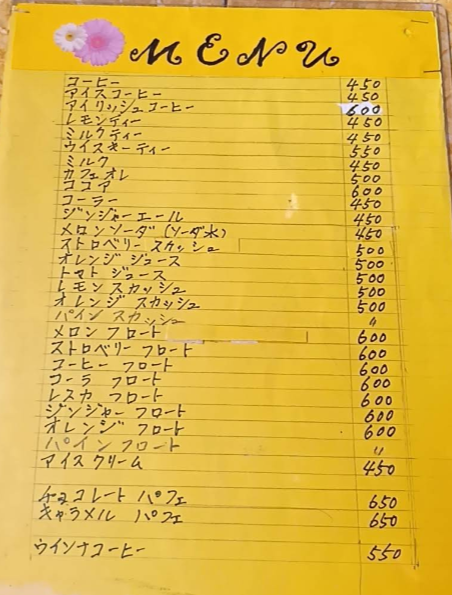 MENU
コーヒー 450
アイスコーヒー 450
アイリッシュコーヒー 600
レモンティー 450
ミルクティー 450
ウイスキーティー 550
ミルク 450
カフェオレ 500
ココア 600
コーラー 450
ジンジャーエール 450
メロンソーダ (ソーダ水) 450
ストロベリー スカッシュ 500
オレンジ ジュース 500
トマト ジュース 500
レモン スカッシュ 500
オレンジ スカッシュ 500
パイン スカッシュ 〃
メロン フロート 600
ストロベリー フロート 600
コーヒー フロート 600
コーラ フロート 600
レスカ フロート 600
ジンジャー フロート 600
オレンジ フロート 600
パイン フロート 〃
アイスクリーム 450
チョコレート パフェ 650
キャラメル パフェ 650
ウインナコーヒー 550